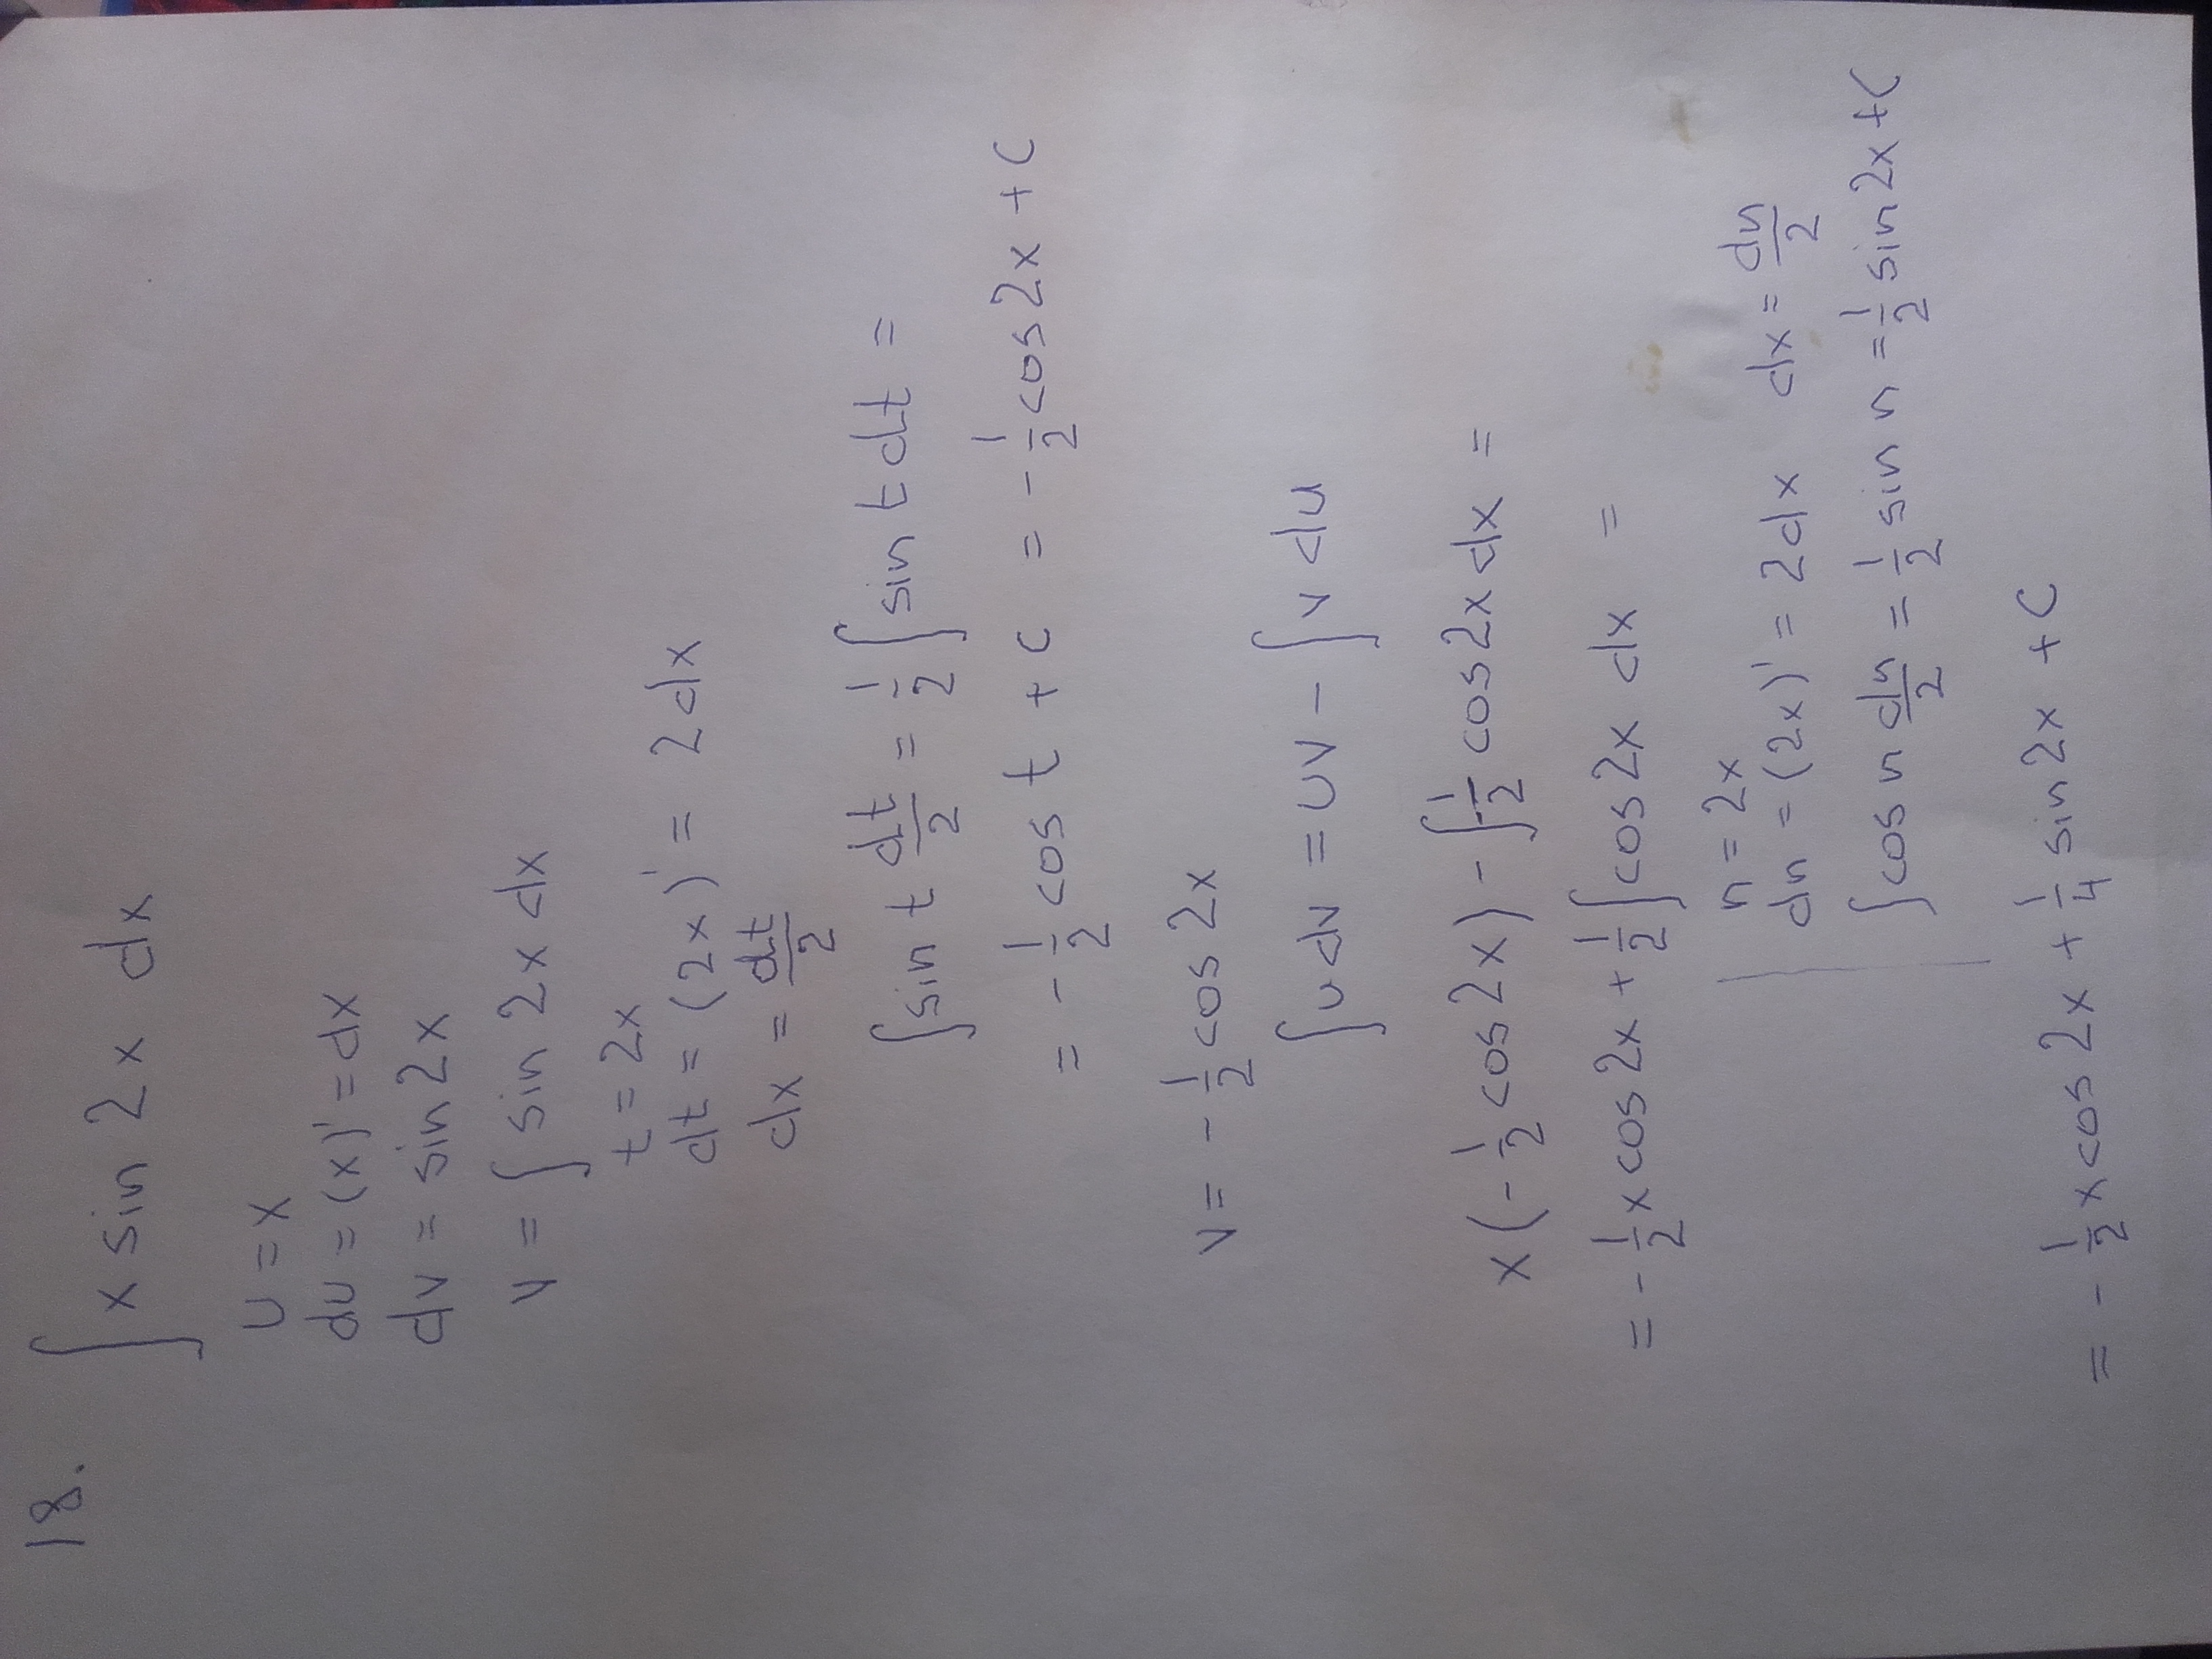 18. ∫ x sin 2x dx
u = x
du = (x)' = dx
dv = sin 2x
v = ∫ sin 2x dx
t = 2x
dt = (2x)' = 2dx
dx = dt/2
∫ sin t dt/2 = 1/2 ∫ sin t dt =
= - 1/2 cos t + c = - 1/2 cos 2x + c
v = - 1/2 cos 2x
∫ u dv = uv - ∫ v du
x(- 1/2 cos 2x) - ∫ - 1/2 cos 2x dx =
= - 1/2 x cos 2x + 1/2 ∫ cos 2x dx =
n = 2x
dn = (2x)' = 2dx dx = dn/2
∫ cos n dn/2 = 1/2 sin n = 1/2 sin 2x + C
= - 1/2 x cos 2x + 1/4 sin 2x + C